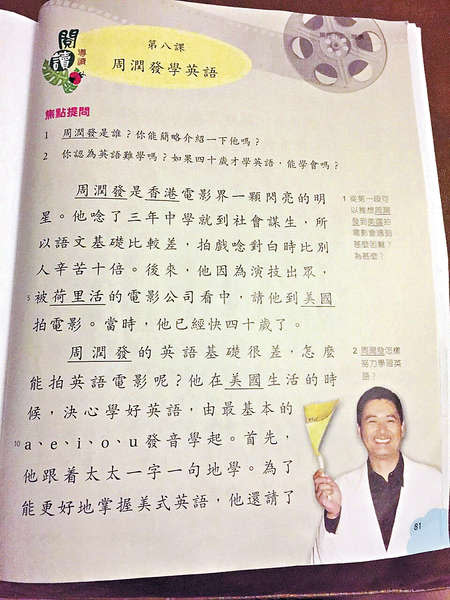 閱讀
導讀
第八課
周潤發學英語
焦點提問
1 周潤發是誰？你能簡略介紹一下他嗎？
2 你認為英語難學嗎？如果四十歲才學英語，能學會嗎？
周潤發是香港電影界一顆閃亮的明
星。他唸了三年中學就到社會謀生，所
以語文基礎比較差，拍戲唸對白時比別
人辛苦十倍。後來，他因為演技出眾，
5 被荷里活的電影公司看中，請他到美國
拍電影。當時，他已經快四十歲了。
周潤發的英語基礎很差，怎麼
能拍英語電影呢？他在美國生活的時
候，決心學好英語，由最基本的
10 a、e、i、o、u發音學起。首先，
他跟着太太一字一句地學。為了
能更好地掌握美式英語，他還請了
1 從第一段可
以推想周潤
發到美國拍
電影會遇到
甚麼困難？
為甚麼？
2 周潤發怎樣
努力學習英
語？
81